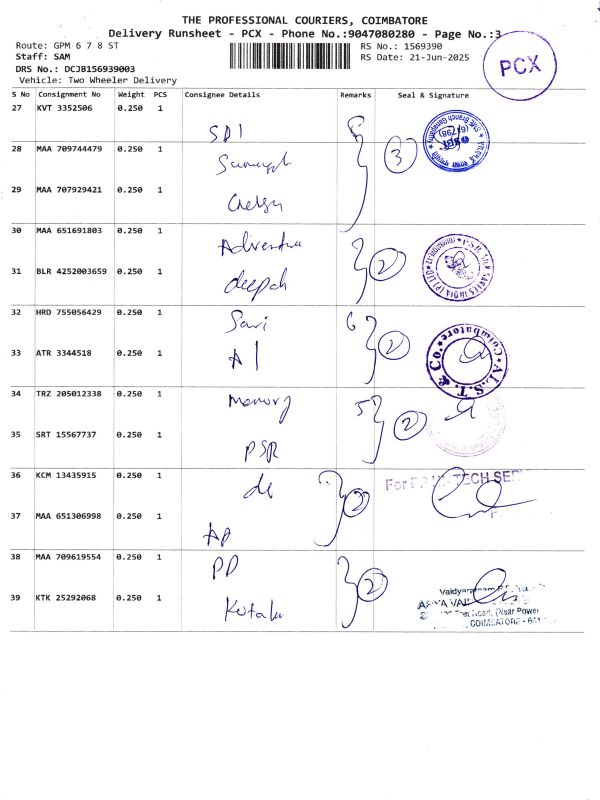 THE PROFESSIONAL COURIERS, COIMBATORE
Delivery Runsheet - PCX - Phone No.:9047080280 - Page No.:3
Route: GPM 6 7 8 ST
RS No.: 1569390
Staff: SAM
RS Date: 21-Jun-2025
DRS No.: DCJB156939003
Vehicle: Two Wheeler Delivery
PCX
S No Consignment No Weight PCS Consignee Details Remarks Seal & Signature
27 KVT 3352506 0.250 1
SBI
3
28 MAA 709744479 0.250 1
29 MAA 707929421 0.250 1
30 MAA 651691803 0.250 1
2
31 BLR 4252003659 0.250 1
deepak
32 HRD 755056429 0.250 1
2
33 ATR 3344518 0.250 1
A1
Coimbatore
& Co.
34 TRZ 205012338 0.250 1
memory
2
35 SRT 15567737 0.250 1
PSR
36 KCM 13435915 0.250 1
2
For
TECH SER
37 MAA 651306998 0.250 1
AP
38 MAA 709619554 0.250 1
PP
2
39 KTK 25292068 0.250 1
(Near Power
COIMBATORE - 641